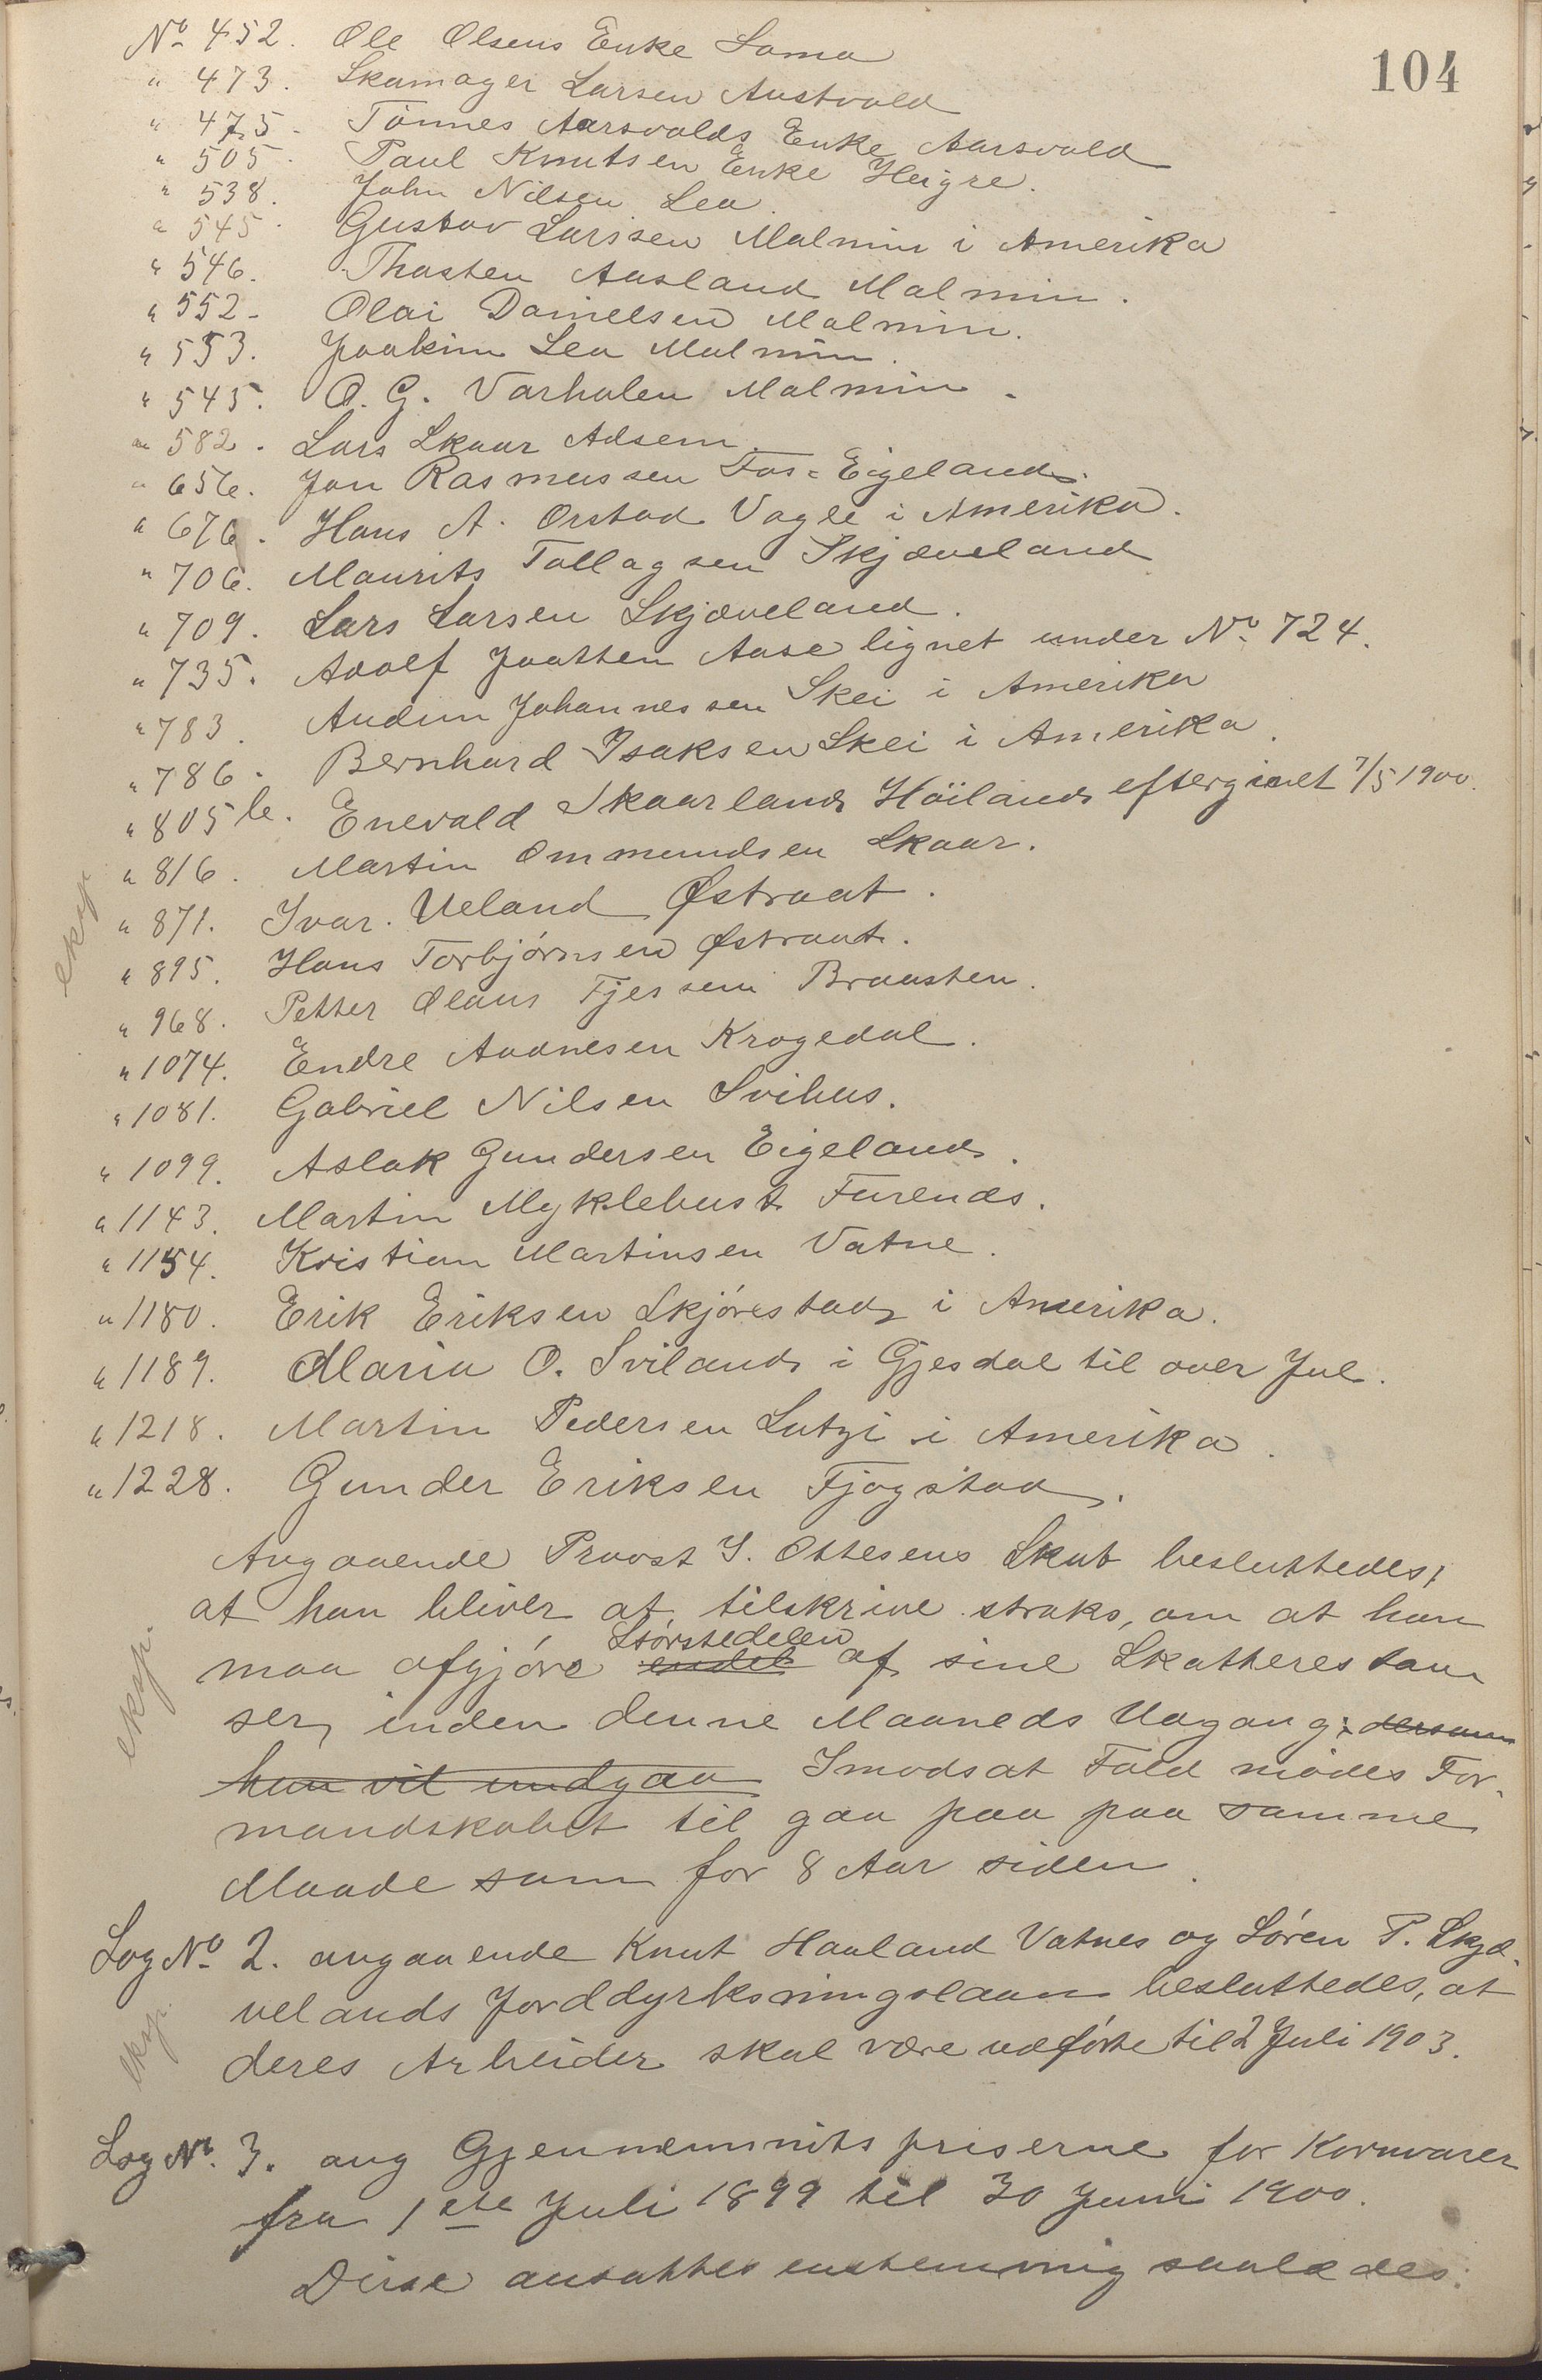 104
No 452. Ole Olsens Enke Soma
" 473. Skomager Larsen Austvold
" 475. Tönnes Aarsvolds Enke Aarsvold
" 505. Paul Knutsen Enke Heigre.
" 538. John Nilsen Lea.
" 545. Gustav Larssen Malmin i Amerika
" 546. Thosten Ausland Malmin.
" 552. Olai Danielsen Malmin.
" 553. Joakim Lea Malmin.
" 545. O. G. Varhalen Malmin.
" 582. Lars Skaar Adsem.
" 656. Jon Rasmussen Fos-Eigeland.
" 676. Hans A. Orstad Vagle i Amerika.
" 706. Maurits Tollagsen Skjæveland
" 709. Lars Larsen Skjæveland.
" 735. Adolf Jaatten Aase lignet under No 724.
" 783. Audun Johannessen Skei i Amerika
" 786. Bernhard Isaksen Skei i Amerika.
" 805 b. Enevald Skaarland Höiland eftergivet 7/5 1900.
" 816. Martin Ommundsen Skaar.
eksp.
" 871. Ivar. Ueland Østraat.
" 895. Hans Torbjørnsen Østraat.
" 968. Petter Olaus Tjessem Braasten.
" 1074. Endre Aadnesen Krogedal.
" 1081. Gabriel Nilsen Svihus.
" 1099. Aslak Gundersen Eigeland.
" 1143. Martin Myklebust Furends.
" 1154. Kristian Martinsen Vatne.
" 1180. Erik Eriksen Skjørestad i Amerika.
" 1189. Maria O. Sviland i Gjesdal til over Jul.
" 1218. Martin Pedersen Lutzi i Amerika.
" 1228. Gunder Eriksen Fjogstad.
Angaaende Provst I. Ottesens Skat besluttedes,
at han bliver at tilskrive straks, om at han
eksp.
maa afgjøre endel Størstedelen af sine Skatterestan
ser, inden denne Maaneds Udgang; dersom
han vil undgaa Imodsat Fald nødes For-
mandskabet til gaa paa paa samme
Maade som for 8 Aar siden.
Sag No 2. angaaende Knut Hauland Vatnes og Søren P. Skjæ-
velands Jorddyrkningslaan besluttedes, at
eksp.
deres Arbeider skal være udførte til 2 Juli 1903.
Sag No. 3. ang Gjennemsnitspriserne for Kornvarer
fra 1ste Juli 1899 til 30 Juni 1900.
Disse ansattes enstemmig saaledes: